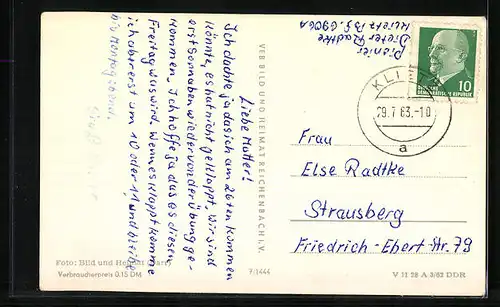 Pionier
Dieter Radtke
Klietz Bg. 6906A
KLIETZ
29.7.63.-10
a
DEUTSCHE
DEMOKRATISCHE REPUBLIK
10
Liebe Mutter!
Ich dachte ja das ich am 26ten kommen
könnte, es hat nicht geklappt. Wir sind
erst Sonnabend wieder von der Übung ge-
kommen. Ich hoffe ja das es diesen
Freitag was wird. Wenn es klappt komme
ich aber erst um 10 oder 11, und bleibe
bis Montagabend.
VEB BILD UND HEIMAT REICHENBACH I. V.
Frau
Else Radtke
Strausberg
Friedrich-Ebert-Str. 79
Foto: Bild und Heimat
Verbraucherpreis 0,15 DM
7/1444
V 11 28 A 3/62 DDR